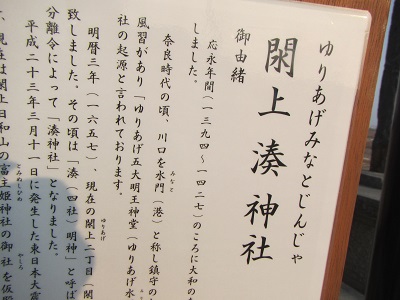 ゆりあげみなとじんじゃ
閖上 湊 神社
御由緒
応永年間(一三九四~一四二七)のころに大和の
しました。
奈良時代の頃、川口を水門(港)と称し鎮守の
みなと
風習があり「ゆりあげ五大明王神堂(ゆりあげ水
社の起源と言われております。
明暦三年(一六五七)、現在の閖上二丁目(閖
ゆりあげ
致しました。その頃は「湊(四社)明神」と呼ば
分離令によって「湊神社」となりました。
平成二十三年三月十一日に発生した東日本大震
現在は閖上日和山の富主姫神社の御社を仮殿
とみぬしひめ
やしろ